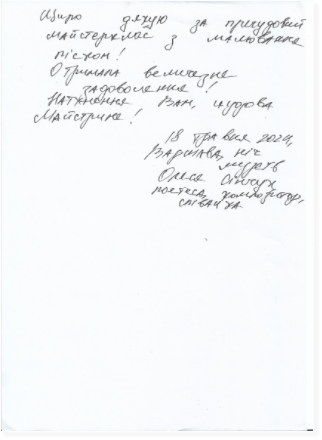 Щиро дякую за пречудовий
майстерклас з малювання
піском!
Отримала величезне
задоволення!
Натхнення Вам, чудова
Майстрине!
18 травня 2024,
Варшава, ніч
музеїв
Олеся Сінчук
поетеса, композитор,
співачка